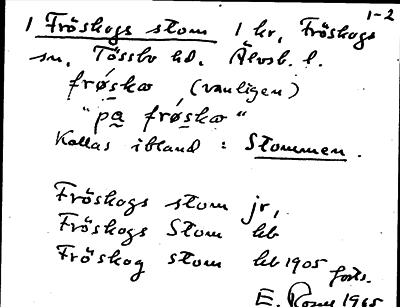 1-2
1 Fröskogs stom 1 kr, Fröskogs
sn, Tössbo hd. Älvsb. l.
frǿskoo (vanligen)
"på frǿskoo"
Kallas ibland : Stommen.
Fröskogs stom jr,
Fröskogs Stom hb
Fröskog stom hb 1905
forts.
E. 1965